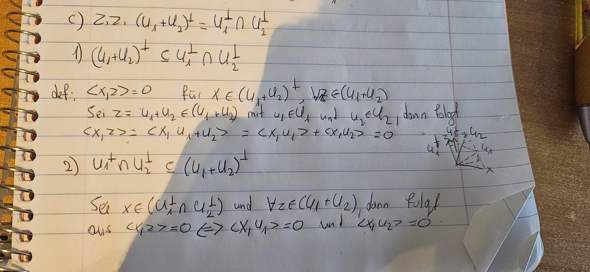 c) z.z. (U₁+U₂)^⊥ = U₁^⊥ ∩ U₂^⊥
1) (U₁+U₂)^⊥ ⊆ U₁^⊥ ∩ U₂^⊥
def: <x,z>=0 für x∈(U₁+U₂)^⊥, ∀z∈(U₁+U₂)
Sei z= u₁+u₂∈(U₁+U₂) mit u₁∈U₁ und u₂∈U₂, dann folgt
<x,z> = <x, u₁+u₂> = <x,u₁> + <x,u₂> = 0
2) U₁^⊥ ∩ U₂^⊥ ⊆ (U₁+U₂)^⊥
Sei x∈(U₁^⊥ ∩ U₂^⊥) und ∀z∈(U₁+U₂), dann folgt
aus <x,z>=0 <=> <x,u₁>=0 und <x,u₂>=0.